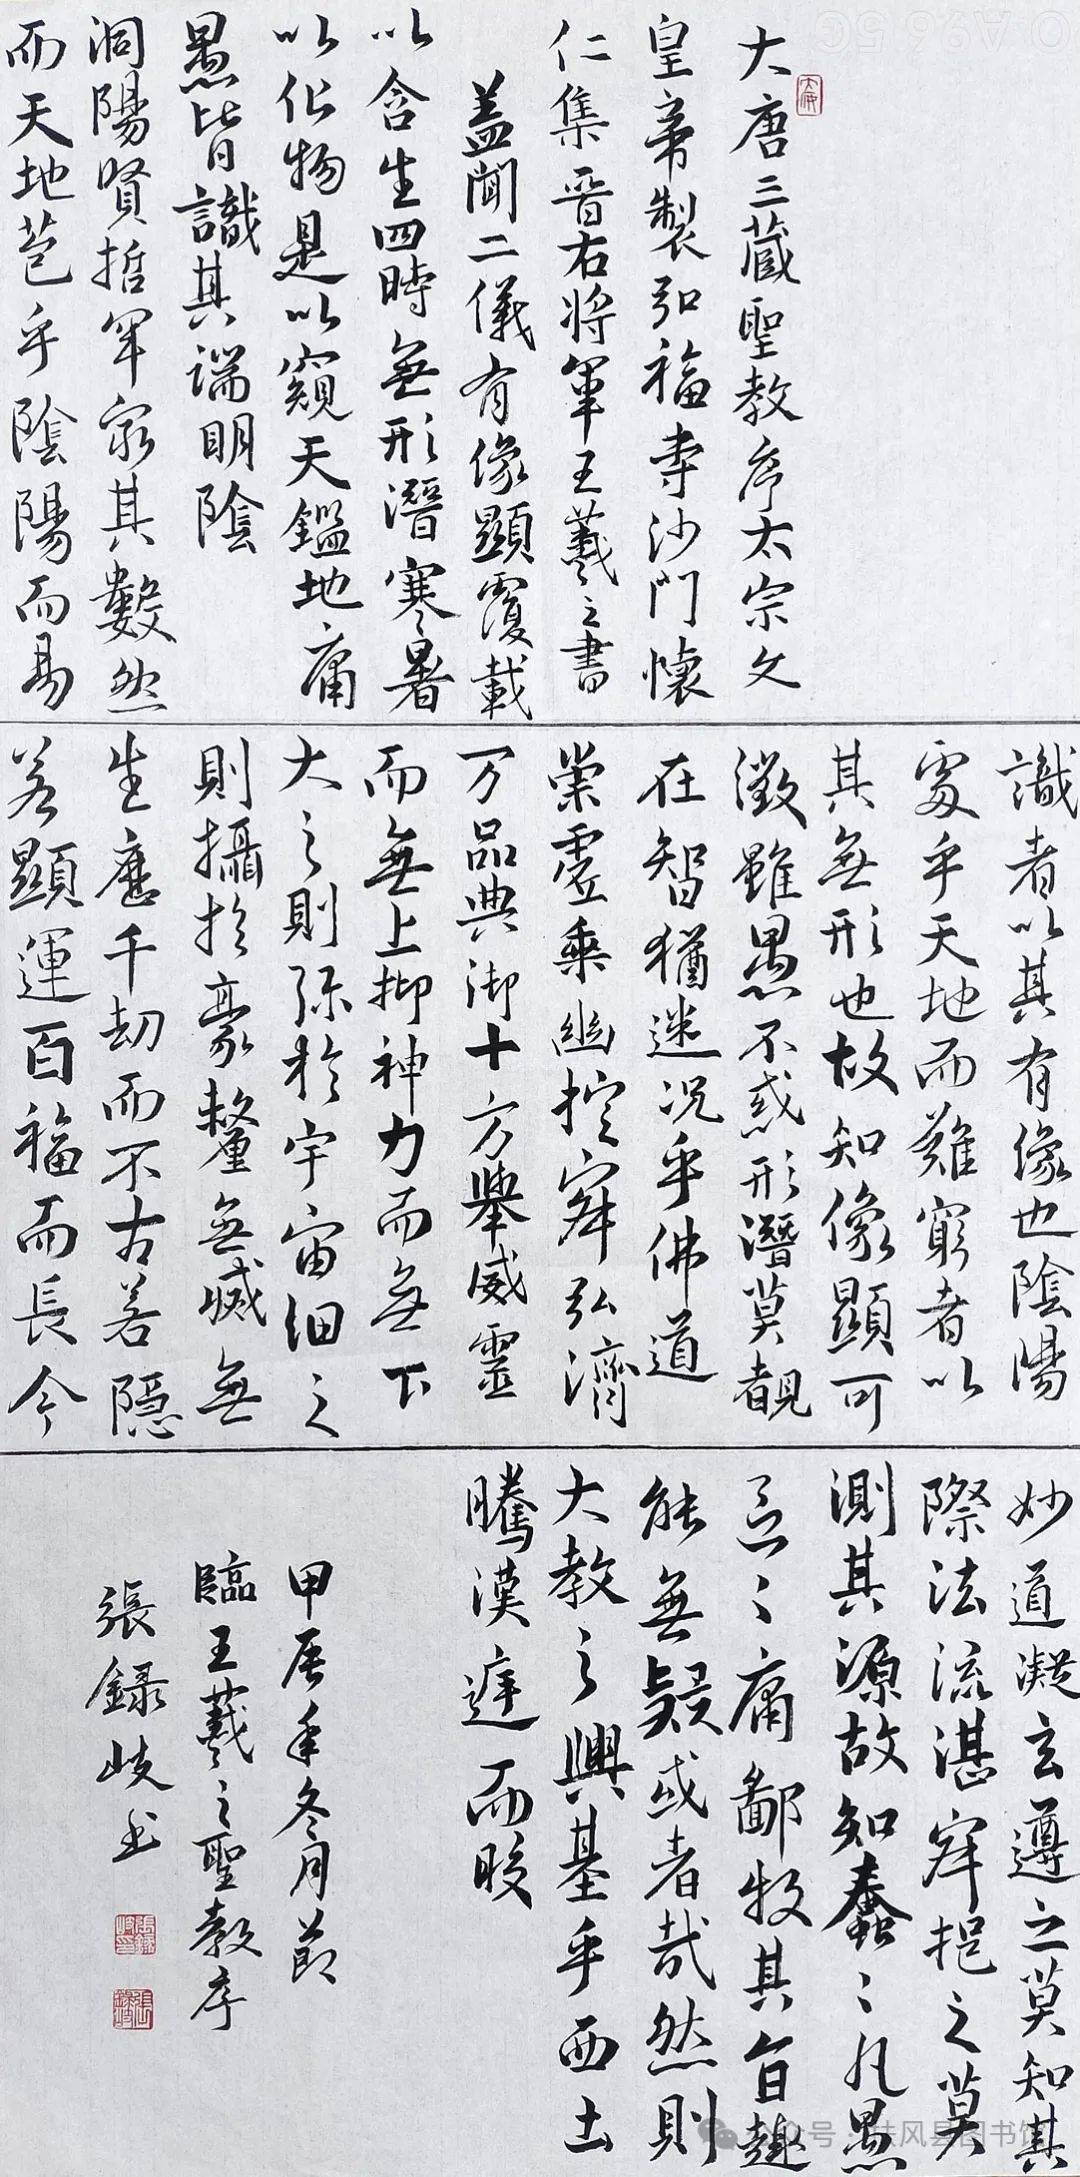 大唐三藏聖教序太宗文
皇帝製弘福寺沙門懷
仁集晉右將軍王羲之書
蓋聞二儀有像顯覆載
以含生四時無形潛寒暑
以化物是以窺天鑑地庸
愚皆識其端明陰
洞陽賢哲罕窮其數然
而天地苞乎陰陽而易
識者以其有像也陰陽
處乎天地而難窮者以
其無形也故知像顯可
徵雖愚不惑形潛莫覩
在智猶迷況乎佛道
崇虛乘幽控寂弘濟
万品典御十方舉威靈
而無上抑神力而無下
大之則弥於宇宙細之
則攝於豪釐無滅無
生歷千劫而不古若隱
若顯運百福而長今
妙道凝玄遵之莫知其
際法流湛寂挹之莫
測其源故知蠢〻凡愚
區〻庸鄙投其旨趣
能無疑或者哉然則
大教之興基乎西土
騰漢庭而皎
甲辰年冬月節
臨王羲之聖教序
張錄岐书
公众号·扶风县图书馆